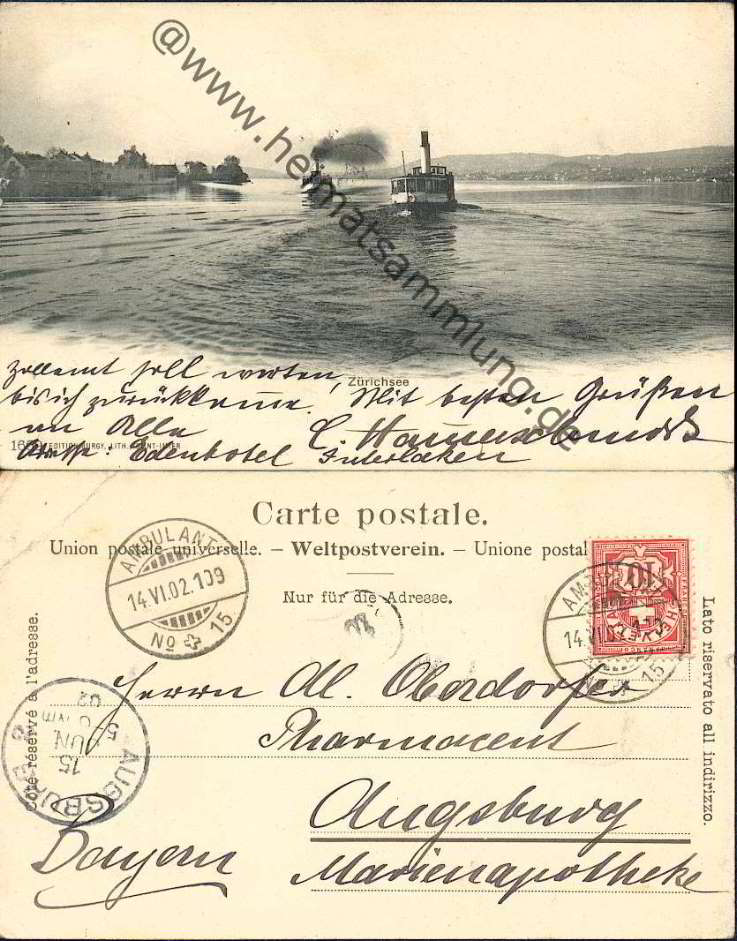 @www.heimatsammlung.de
Zürichsee
Zollamt soll warten
bis ich zurückkomme! Mit besten Grüßen
an Alle
EDITION BURGY, LITH.
Adresse: Edenhotel Interlaken
Carte postale.
Union postale universelle. – Weltpostverein. – Unione postal
Nur für die Adresse.
AMBULANT
14.VI.02.109
No 15
AMBULANT
14.VI.
No 15
10
HELVETIA
FRANCO
Côté réservé à l'adresse.
Lato riservato all indirizzo.
AUGSBURG 2
15
JUN
5-6 Nm
02
Herrn Al. Oberdorfer
Pharmaceut
Augsburg
Bayern
Marienapotheke